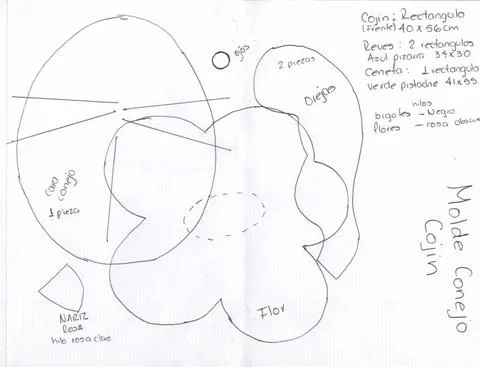 Cojin: Rectangulo
(Frente) 40 x 56 cm
Reves: 2 rectangulos
Azul pizarra 34x30
Ceneta: 1 rectangulo
verde pistache 41x55
hilos
bigotes - Negro
flores - rosa obscuro
ojos
2 piezas
Orejas
cara
conejo
1 pieza
Flor
NARIZ
ROSA
hilo rosa claro.
Molde Conejo
Cojin